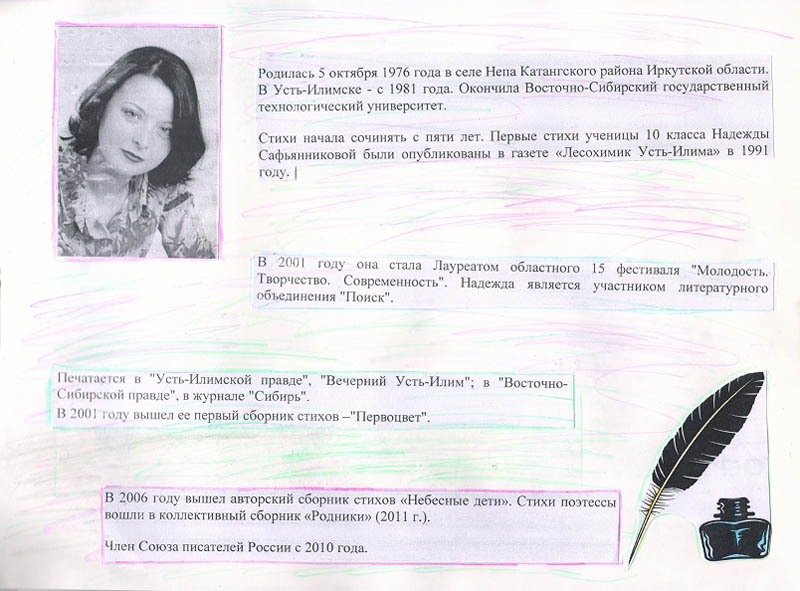 Родилась 5 октября 1976 года в селе Непа Катангского района Иркутской области.
В Усть-Илимске - с 1981 года. Окончила Восточно-Сибирский государственный
технологический университет.
Стихи начала сочинять с пяти лет. Первые стихи ученицы 10 класса Надежды
Сафьянниковой были опубликованы в газете «Лесохимик Усть-Илима» в 1991
году.
В 2001 году она стала Лауреатом областного 15 фестиваля "Молодость.
Творчество. Современность". Надежда является участником литературного
объединения "Поиск".
Печатается в "Усть-Илимской правде", "Вечерний Усть-Илим"; в "Восточно-
Сибирской правде", в журнале "Сибирь".
В 2001 году вышел ее первый сборник стихов –"Первоцвет".
В 2006 году вышел авторский сборник стихов «Небесные дети». Стихи поэтессы
вошли в коллективный сборник «Родники» (2011 г.).
Член Союза писателей России с 2010 года.